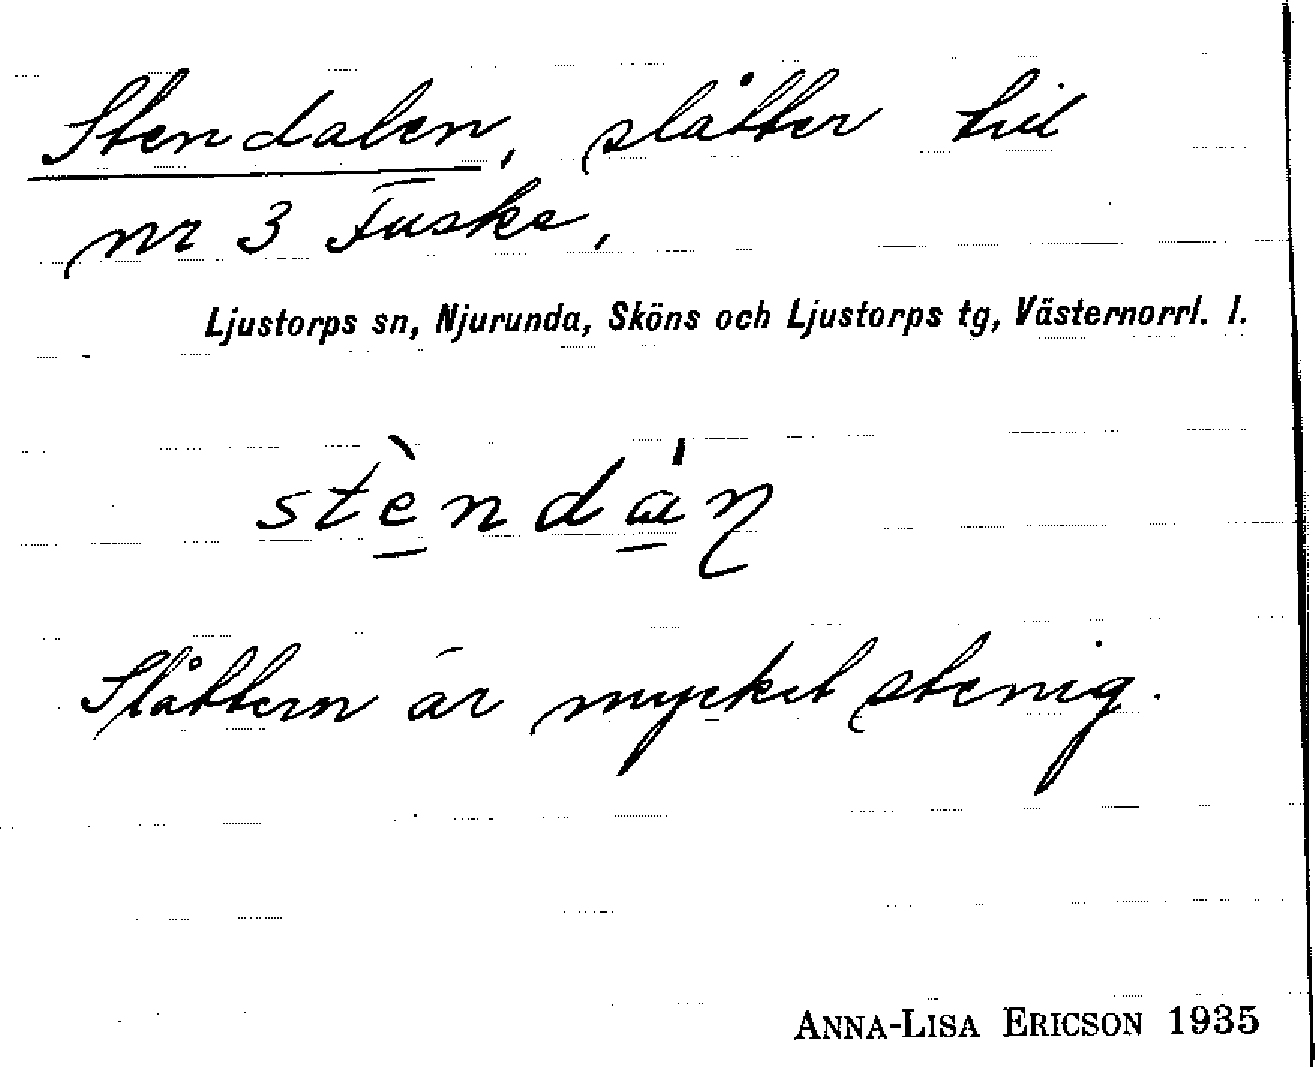 Stendalen, slåtter till
nr 3 Fuske,
Ljustorps sn, Njurunda, Sköns och Ljustorps tg, Västernorrl. l.
stèndáŋ
Slåttern är mycket stenig.
ANNA-LISA ERICSON 1935